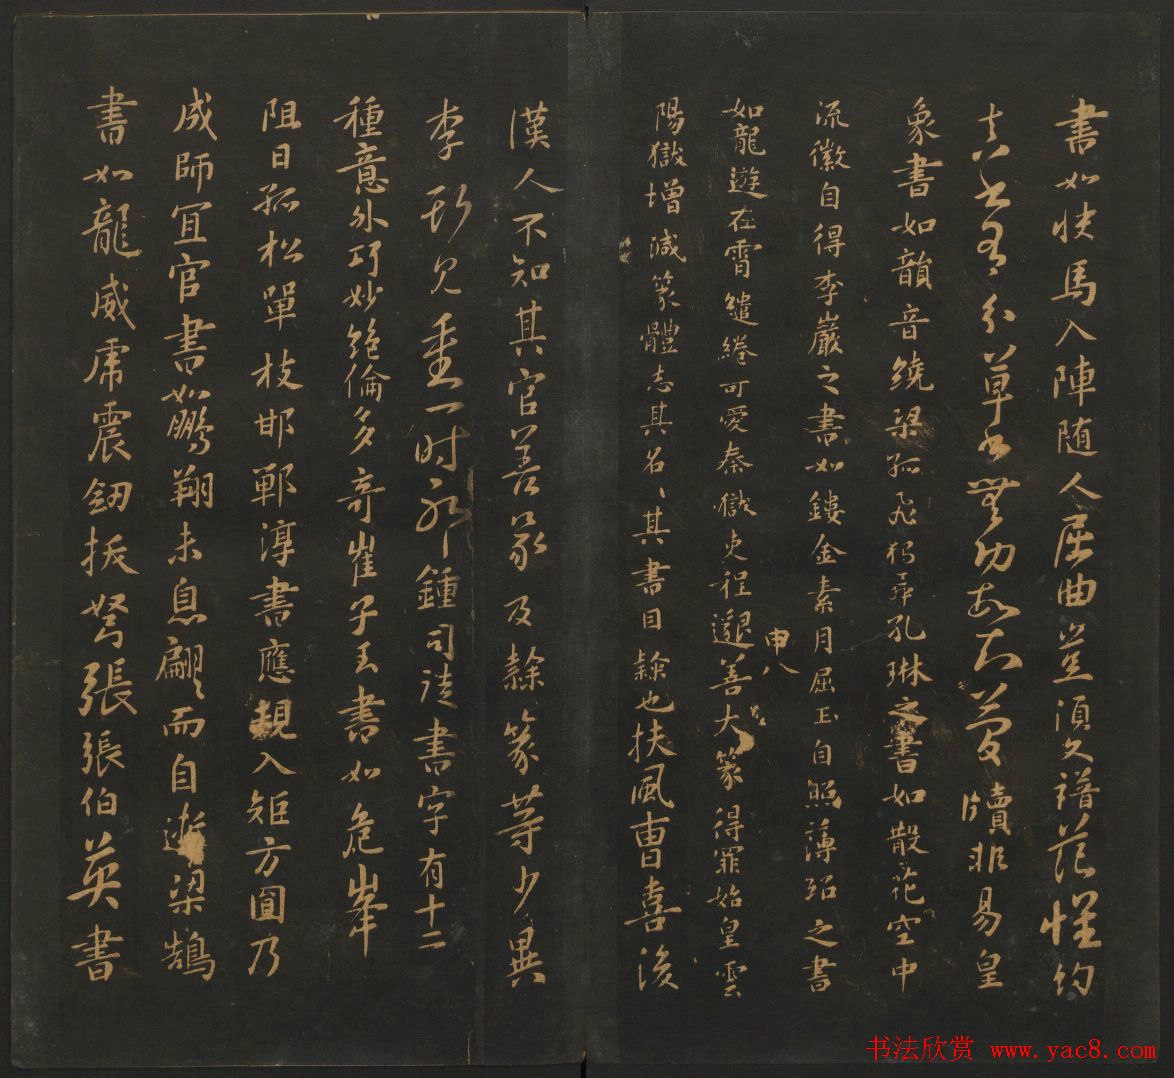 書如快馬入陣随人屈曲豈須文譜范懷約
真書有分草書無功故知簡牘非易皇
象書如韻音繞梁孤飛獨舞孔琳之書如散花空中
流徽自得李巖之書如鏤金素月屈玉自照薄紹之書
如龍遊在霄繾綣可愛秦獄吏程邈善大篆得罪始皇雲
申八
陽獄增減篆體志其名、其書曰隸也扶風曹喜後
漢人不知其官善篆及隸篆等少異
李斯見重一时
鍾司徒書字有十二
種意意外巧妙絕倫多奇崔子玉書如危峯
阻日孤松單枝邯鄲淳書應規入矩方圓乃
成師宜官書如鵬翔未息翩而自逝梁鵠
書如龍威虎震劒拔弩張張伯英書
书法欣赏 www.yac8.com